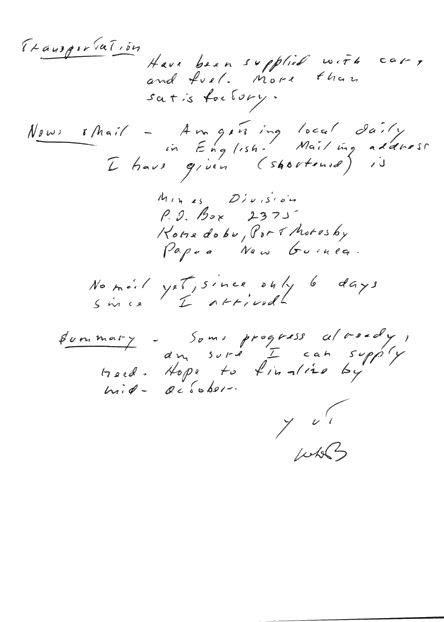 Transportation
Have been supplied with car,
and fuel. More than
satisfactory.
News & Mail - Am getting local daily
in English. Mailing address
I have given (shortened) is
Mines Division
P.O. Box 2375
Konedobu, Port Moresby
Papua New Guinea.
No mail yet, since only 6 days
since I arrived.
Summary - Some progress already,
am sure I can supply
need. Hope to finalize by
mid-October.